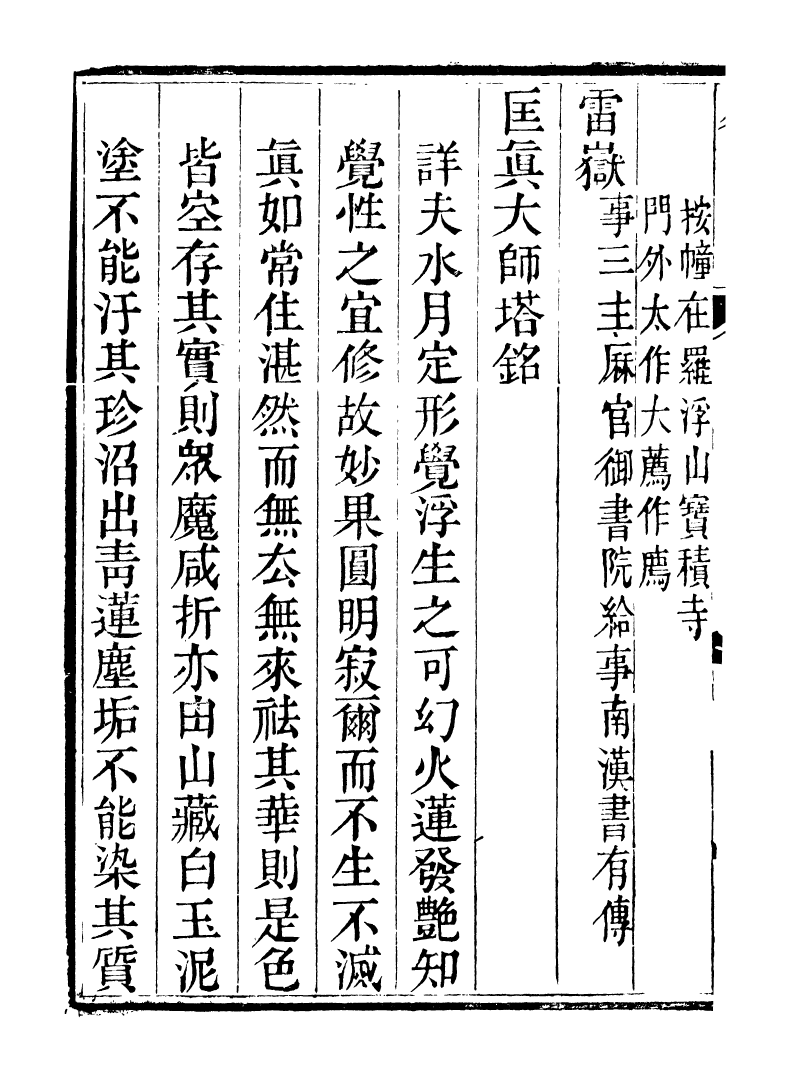 按幢在羅浮山寶積寺
門外太作大薦作廌
雷嶽事三主厤官御書院給事南漢書有傳
匡眞大師塔銘
詳夫水月定形覺浮生之可幻火蓮發艶知
覺性之宜修故妙果圓明寂爾而不生不滅
眞如常住湛然而無厺無來祛其華則是色
皆空存其實則衆魔咸折亦由山藏白玉泥
塗不能汙其珍沼出靑蓮塵垢不能染其質